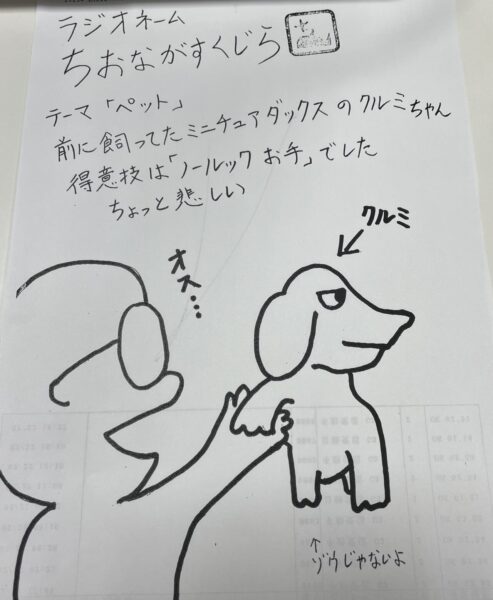 ラジオネーム
ちおながすくじら
テーマ「ペット」
前に飼ってたミニチュアダックスのクルミちゃん
得意技は「ノールックお手」でした
ちょっと悲しい
クルミ
オス…
↑
ゾウじゃないよ